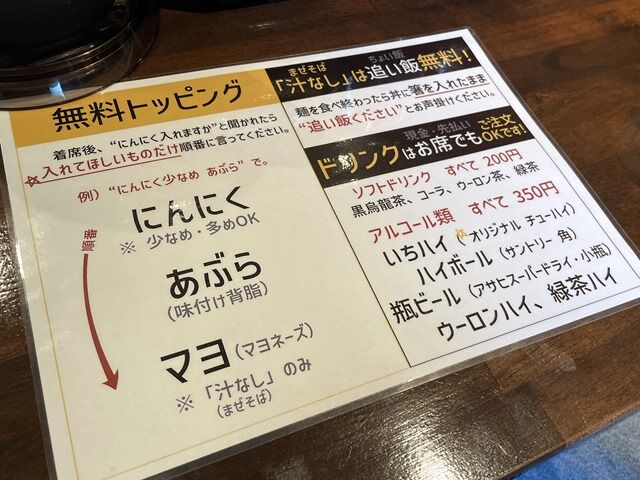 無料トッピング
着席後、“にんにく入れますか”と聞かれたら
☆入れてほしいものだけ順番に言ってください。
例)“にんにく少なめ あぶら”で。
順番
にんにく
※ 少なめ・多めOK
あぶら
(味付け背脂)
マヨ(マヨネーズ)
※「汁なし」のみ
(まぜそば)
まぜそば ちょい飯
「汁なし」は追い飯無料!
麺を食べ終わったら丼に箸を入れたまま
“追い飯ください”とお声掛けください。
現金・先払い
ドリンクはお席でもご注文OKです!
ソフトドリンク すべて 200円
黒烏龍茶、コーラ、ウーロン茶、緑茶
アルコール類 すべて 350円
いちハイ(オリジナル チューハイ)
ハイボール(サントリー 角)
瓶ビール(アサヒスーパードライ・小瓶)
ウーロンハイ、緑茶ハイ